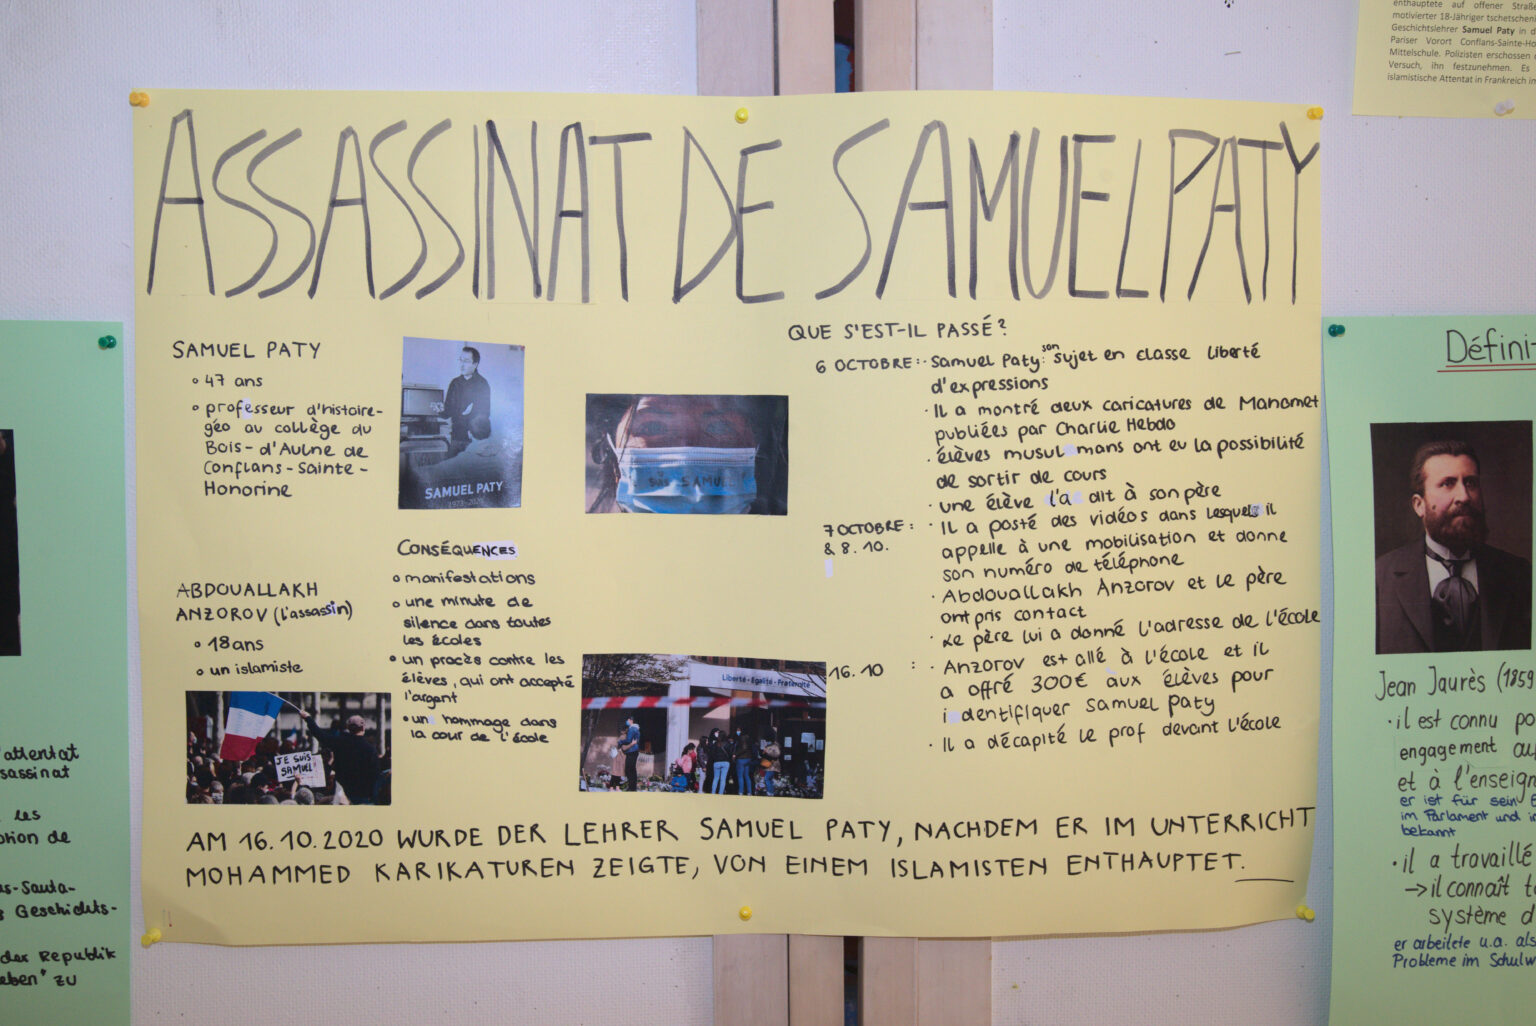 ASSASSINAT DE SAMUEL PATY
SAMUEL PATY
47 ans
professeur d'histoire-
géo au collège du
Bois-d'Aulne de
Conflans-Sainte-
Honorine
SAMUEL PATY
1973-2020
SAMUEL
ABDOUALLAKH
ANZOROV (l'assassin)
18ans
un islamiste
JE SUIS
SAMUEL
CONSÉQUENCES
manifestations
une minute de
silence dans toutes
les écoles
un procès contre les
élèves, qui ont accepté
l'argent
un hommage dans
la cour de l'école
Liberté - Egalité - Fraternité
QUE S'EST-IL PASSÉ?
6 OCTOBRE: · Samuel Paty: son sujet en classe liberté
d'expressions
· Il a montré deux caricatures de Mahomet
publiées par Charlie Hebdo
· élèves musulmans ont eu la possibilité
de sortir de cours
· une élève l'a dit à son père
7 OCTOBRE: · Il a posté des vidéos dans lesquels il
& 8.10. appelle à une mobilisation et donne
son numéro de téléphone
· Abdouallakh Anzorov et le père
ont pris contact
· Le père lui a donné l'adresse de l'école
16.10 : · Anzorov est allé à l'école et il
a offré 300€ aux élèves pour
identifiquer Samuel Paty
· Il a décapité le prof devant l'école
AM 16.10.2020 WURDE DER LEHRER SAMUEL PATY, NACHDEM ER IM UNTERRICHT
MOHAMMED KARIKATUREN ZEIGTE, VON EINEM ISLAMISTEN ENTHAUPTET.
enthauptete auf offener Straße
motivierter 18-Jähriger
Geschichtslehrer Samuel Paty in
Pariser Vorort Conflans-Sainte-Ho
Mittelschule. Polizisten erschossen
Versuch, ihn festzunehmen. Es
islamistische Attentat in Frankreich
'attentat
sassinat
les
de
Geschichts-
der Republik
zu
Défini
Jean Jaurès (1859
· il est connu po
engagement
et à l'enseign
er ist für sein
im Parlament und
bekannt
· il a travaillé
→ il connaît
système d
er arbeitete u.a. als
Probleme im Schulw